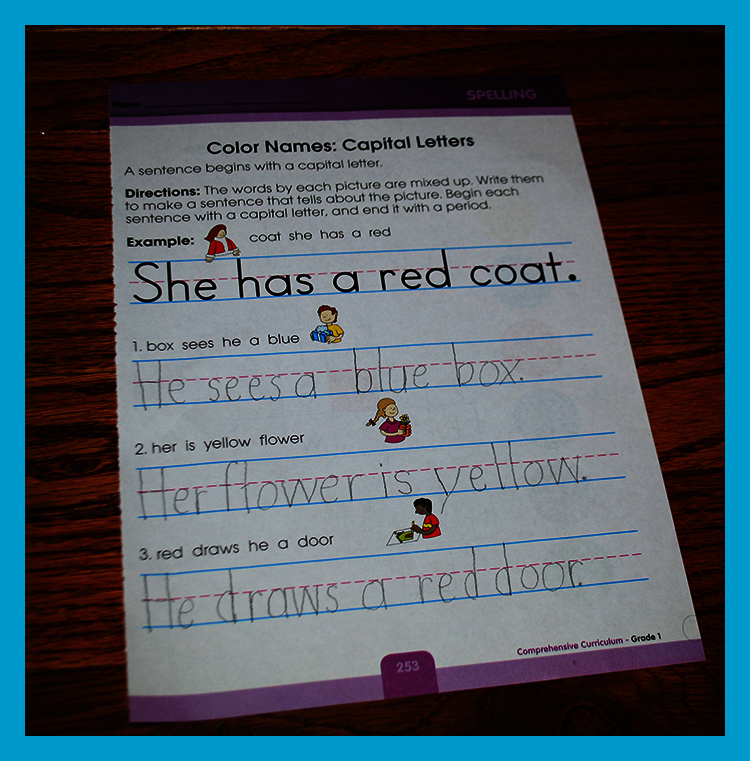 Name
SPELLING
Color Names: Capital Letters
A sentence begins with a capital letter.
Directions: The words by each picture are mixed up. Write them
to make a sentence that tells about the picture. Begin each
sentence with a capital letter, and end it with a period.
Example: coat she has a red
She has a red coat.
1. box sees he a blue
He sees a blue box.
2. her is yellow flower
Her flower is yellow.
3. red draws he a door
He draws a red door.
253
Comprehensive Curriculum - Grade 1